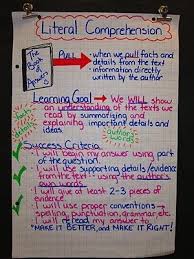 Literal Comprehension
The Book of Answers
PULL → when we pull facts and
details from the text
information directly
written by the author
Learning Goal → We WILL show
an understanding of the texts we
read by summarizing and
explaining important details and
ideas.
facts details
author's words
Success Criteria
I will begin my answer using part
of the question.
I will use supporting details/evidence
from the text - using the author's
own words.
I will give at least 2-3 pieces of
evidence.
I will use proper conventions -
spelling, punctuation, grammar etc.
I will reread my answer to
"MAKE IT BETTER, and MAKE IT RIGHT!"